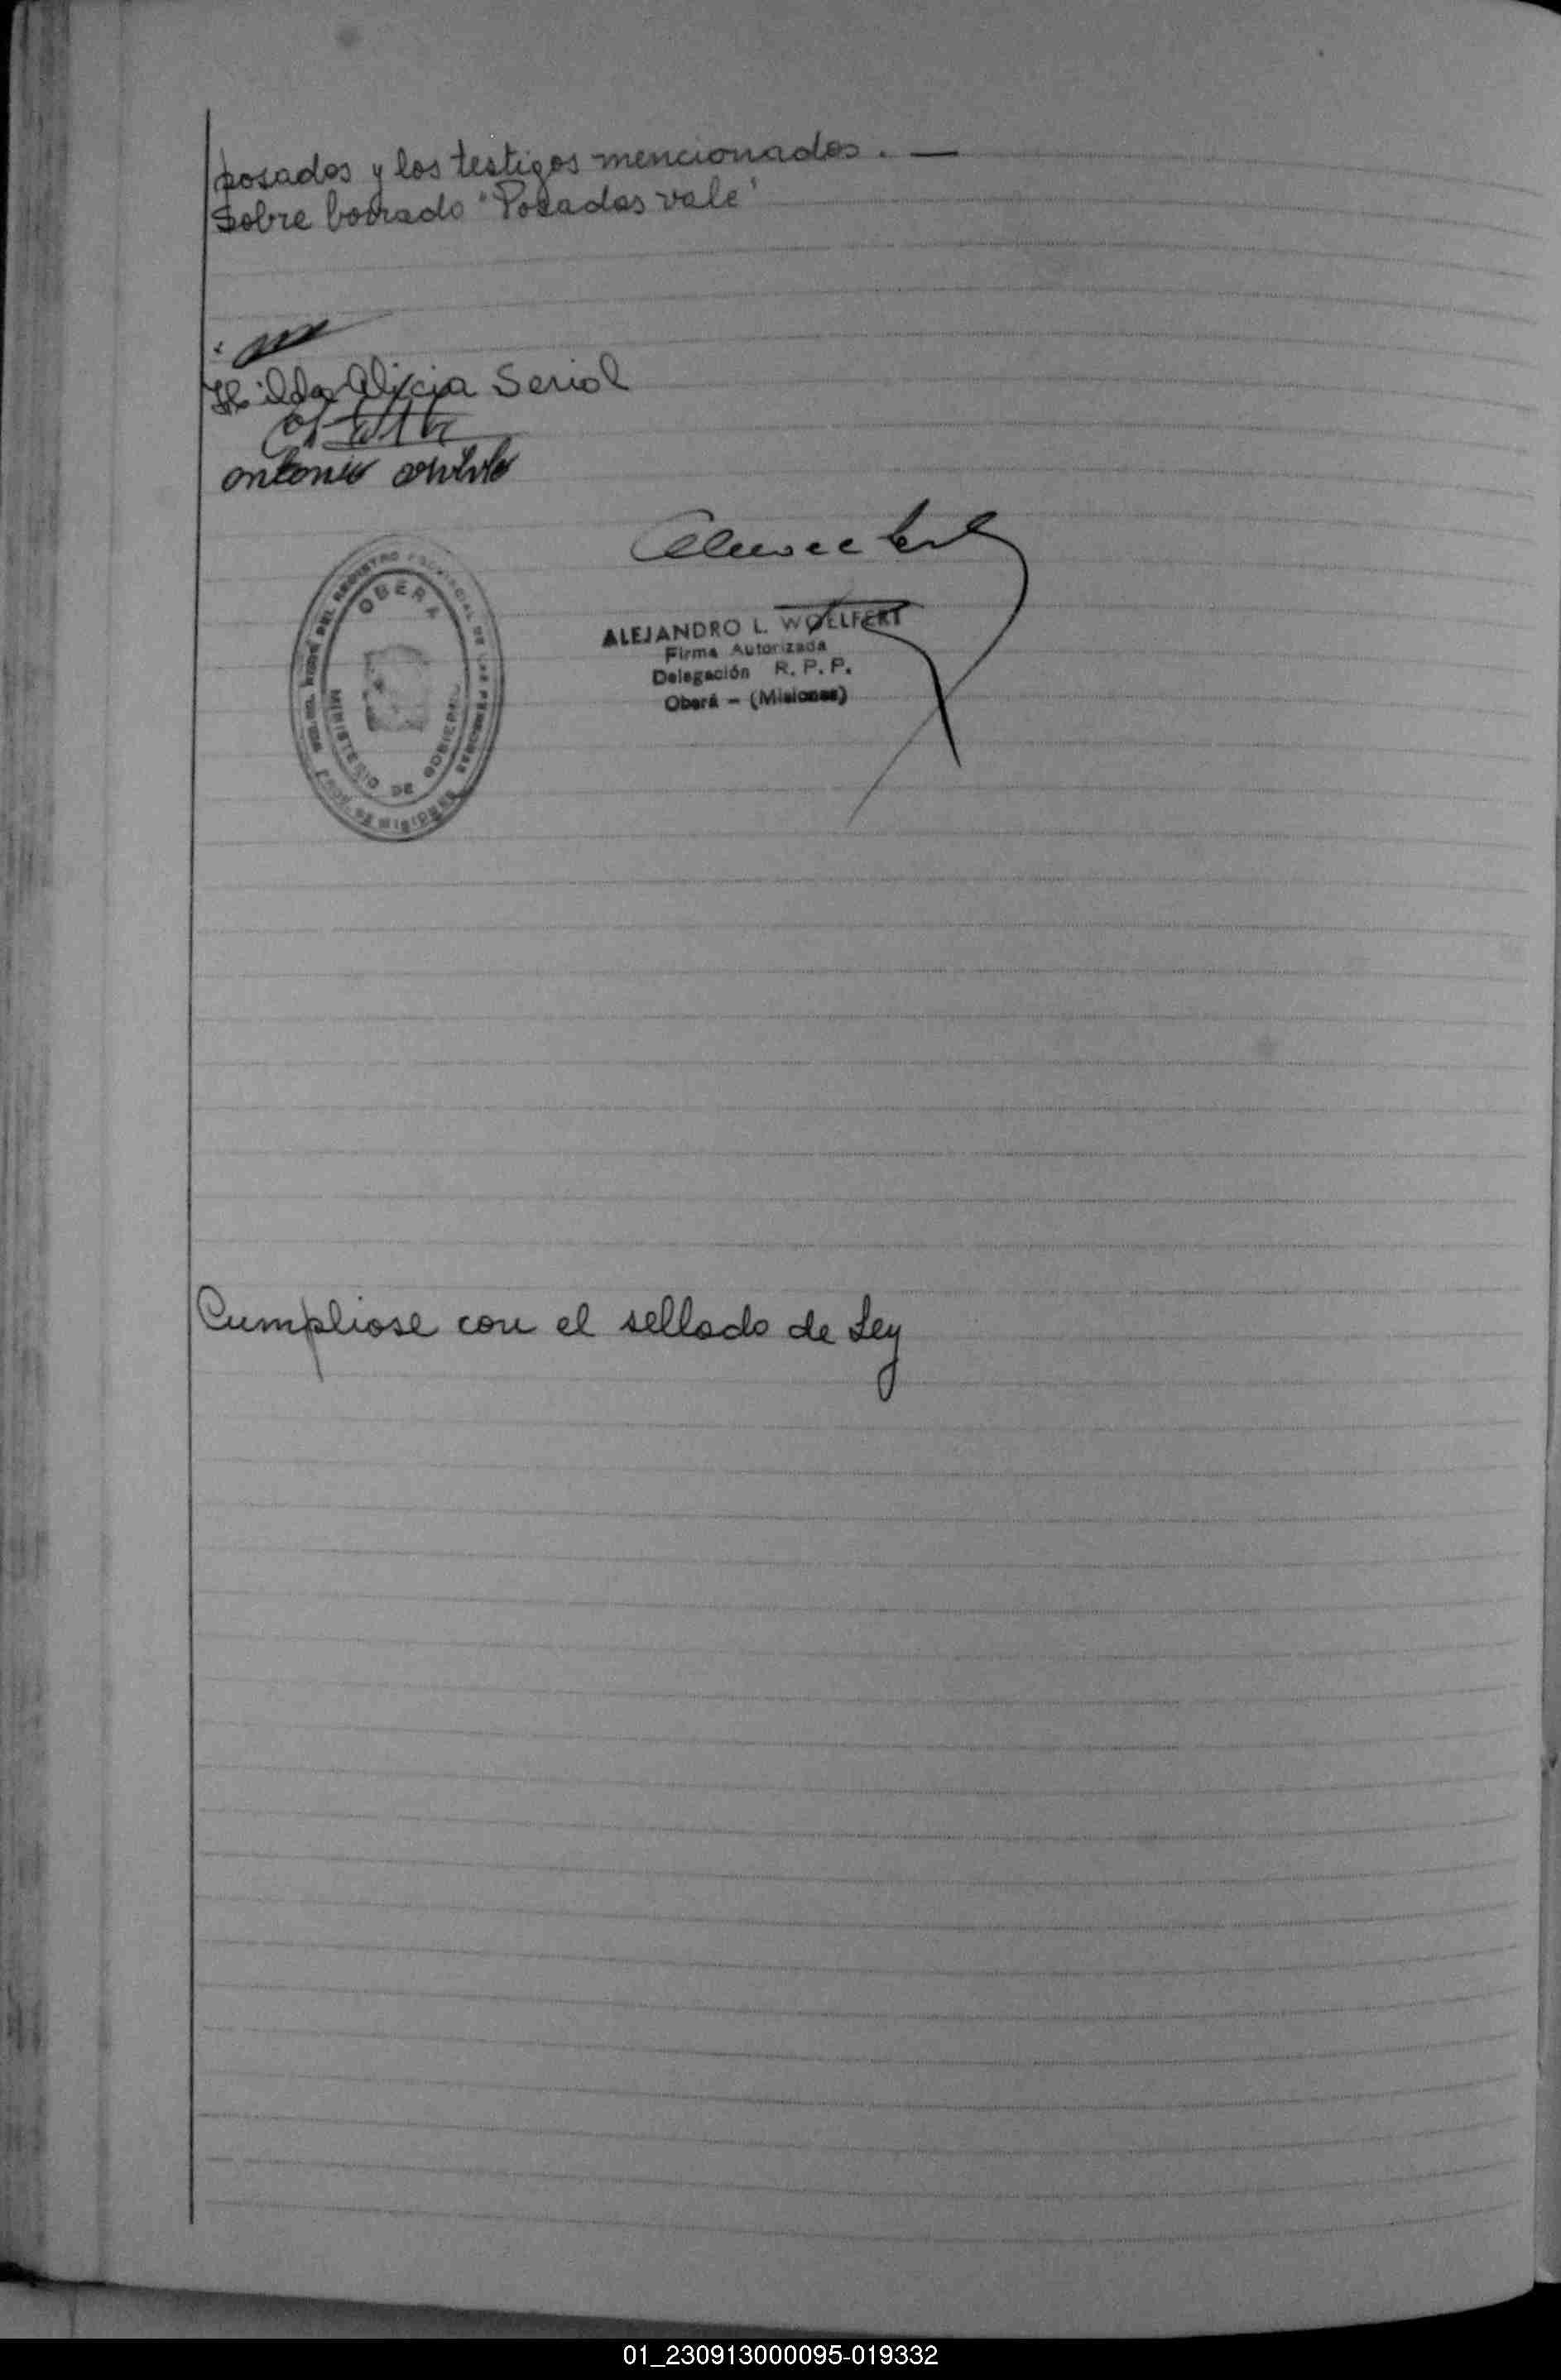 posados y los testigos mencionados. —
Sobre borrado "Posadas vale"
Hilda Alicia Seriol
Antonio
OBERA
MINISTERIO DE GOBIERNO
ALEJANDRO L. WOELFERT
Firma Autorizada
Delegación R. P. P.
Oberá - (Misiones)
Cumpliose con el sellado de Ley
01_230913000095-019332